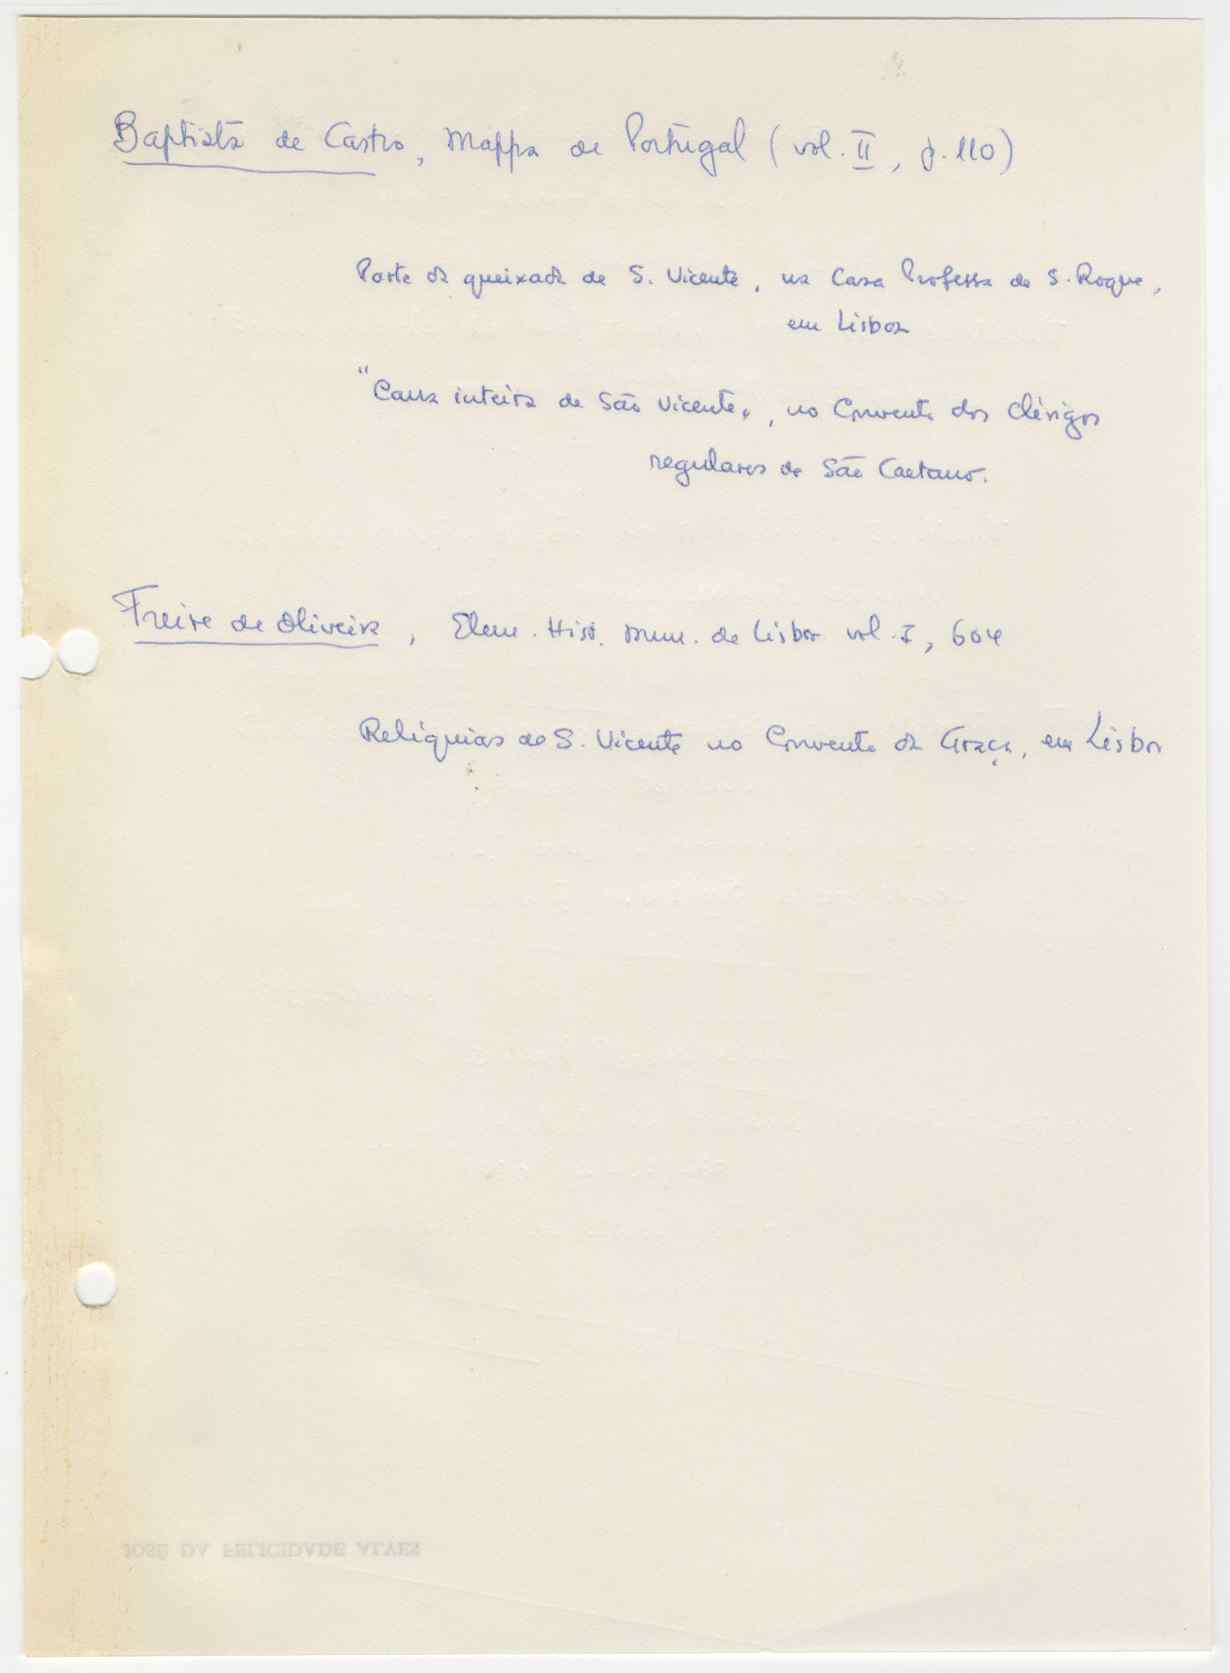 Baptista de Castro, Mappa de Portugal (vol. II, p. 110)
Parte da queixada de S. Vicente, na Casa Professa de S. Roque,
em Lisboa
"Cana inteira de São Vicente", no Convento dos Clérigos
regulares de São Caetano.
Freire de Oliveira, Elem. Hist. Mun. de Lisboa vol. I, 604
Relíquias de S. Vicente no Convento da Graça, em Lisboa
JOSÉ DA FELICIDADE ALVES